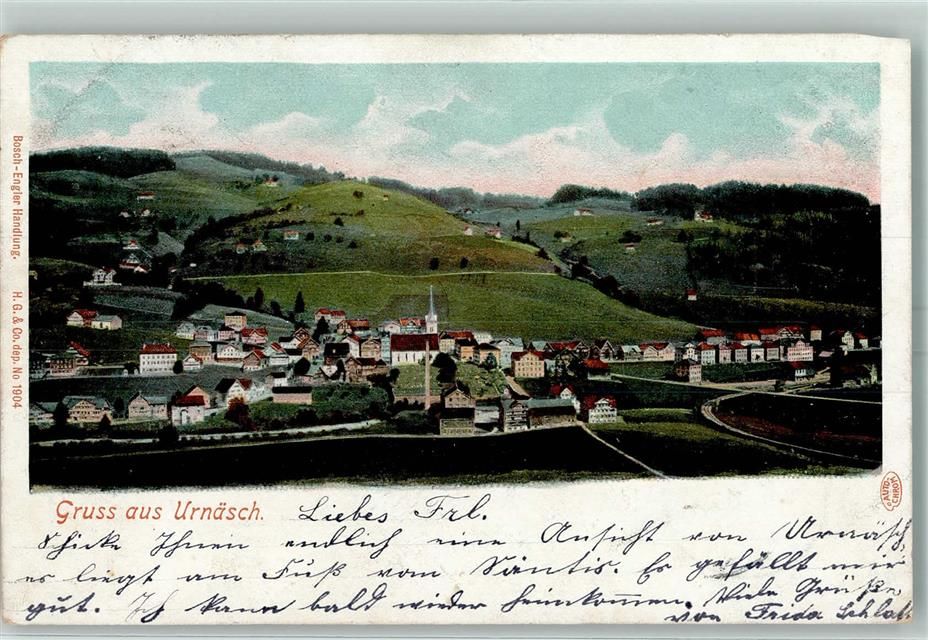 Bosch-Engler Handlung. H. G. & Co. dep. No 1904
AUTO-CHROM
Gruss aus Urnäsch. Liebes Frl.
Schicke Ihnen endlich eine Ansicht von Urnäsch,
es liegt am Fuß vom Säntis. Es gefällt mir
gut. Ich kann bald wieder heimkommen. Viele Grüße
von Frida